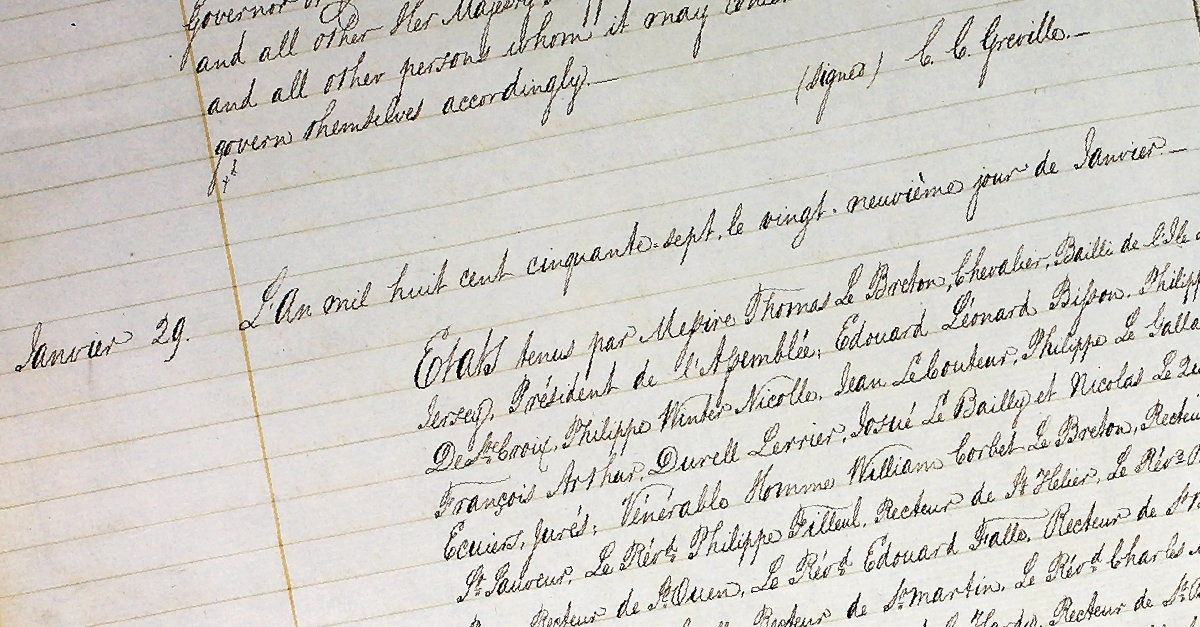 Governor
and all other Her Majesty's
and all other persons whom it may
govern themselves accordingly.—
(signed) C. C. Greville.—
L'An mil huit cent cinquante-sept, le vingt-neuvième jour de Janvier.—
Janvier 29.
Etats tenus par Messire Thomas Le Breton, Chevalier, Bailli de l'Ile
Jersey, Président de l'Assemblée; Edouard Léonard Bisson, Philippe
De Ste Croix, Philippe Winter Nicolle, Jean Le Couteur, Philippe Le Gallais
François Arthur, Durell Lerrier, Josué Le Bailly et Nicolas Le
Ecuiers, Jurés; Vénérable Homme William Corbet Le Breton, Recteur
St Sauveur, Le Révd Philippe Filleul, Recteur de St Helier, Le Révd
Recteur de St Ouen, Le Révd Edouard Falle, Recteur de St
Recteur de St Martin, Le Révd Charles
Recteur de St